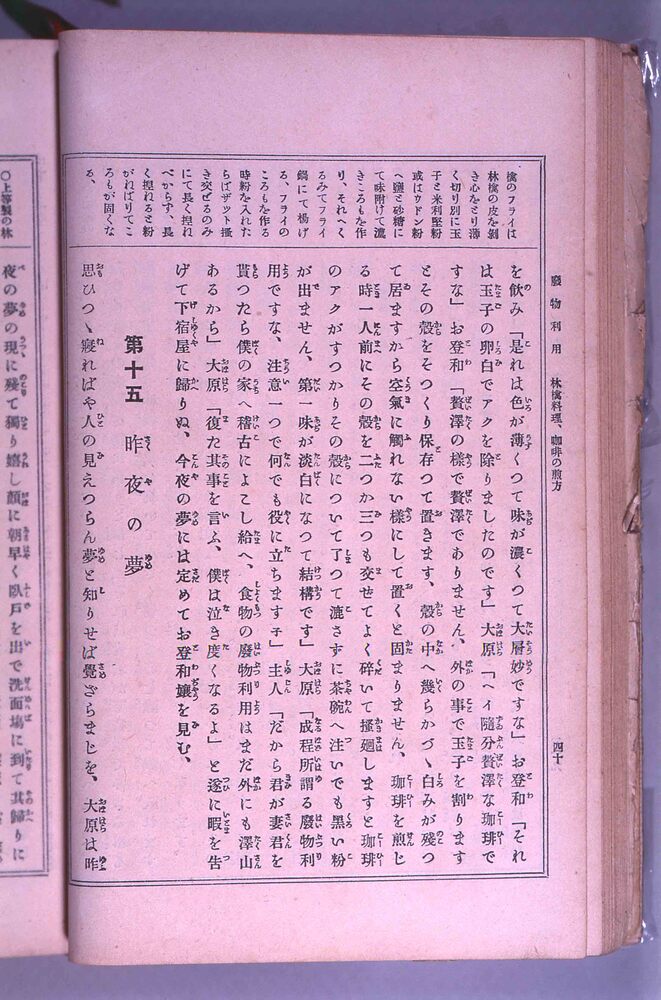 廢物利用　林檎料理、珈琲の煎方
四十
檎のフライは
林檎の皮を剝
き心をとり薄
く切り別に玉
子と米利堅粉
或はウドン粉
へ鹽と砂糖に
て味附けて濃
きころもを作
り、それへく
るみてフライ
鍋にて楊げ
る、フライの
ころもを作る
時粉を入れた
らばザット搔
き交ぜるのみ
にて長く揑ね
べからず、長
く揑ねると粉
がねばりてこ
ろもが固くな
る、
を飮み「是れは色が薄くつて味が濃くつて大層妙ですな」お登和「それ
は玉子の卵白でアクを除りましたのです」大原「ヘイ隨分贅澤な珈琲で
すな」お登和「贅澤の樣で贅澤でありません、外の事で玉子を割ります
とその殼をそつくり保存つて置きます、殼の中へ幾らかづゝ白みが殘つ
て居ますから空氣に觸れない樣にして置くと固まりません、珈琲を煎じ
る時一人前にその殼を二つか三つも交せてよく碎いて搔廻しますと珈琲
のアクがすつかりその殼について了つて漉さずに茶碗へ注いでも黑い粉
が出ません、第一味が淡白になつて結構です」大原「成程所謂る廢物利
用ですな、注意一つで何でも役に立ちますネ」主人「だから君が妻君を
貰つたら僕の家へ稽古によこし給へ、食物の廢物利用はまだ外にも澤山
あるから」大原「復た其事を言ふ、僕は泣き度くなるよ」と遂に暇を告
げて下宿屋に歸りぬ、今夜の夢には定めてお登和孃を見む、
第十五　昨夜の夢
思ひつゝ寢ればや人の見えつらん夢と知りせば覺ざらまじを、大原は昨
○上等製の林
夜の夢の現に殘て獨り嬉し顏に朝早く臥戶を出で洗面塲に到て其歸りに